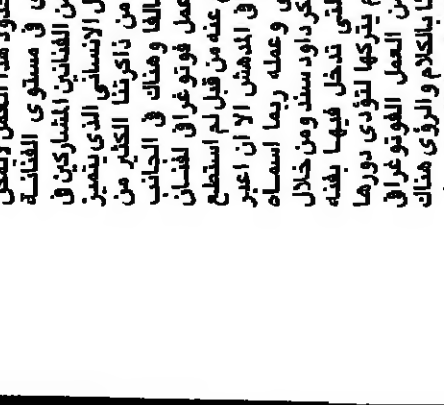 هذا العمل لايمكن
فى مستوى الفنانة
من الفنانين المشاركين فى
الانسانى الذى يتميز
من ذاكرتنا الكثير من
وهناك فى الجانب
عمل فوتوغرافى لفنان
عنه من قبل لم استطع
فى المدهش الا ان اعبر
وعمله ربما اسماه
داود سند ومن خلال
تدخل فيها بفنه
يتركها لتؤدى دورها
العمل الفوتوغرافى
بالكلام والرؤى هناك